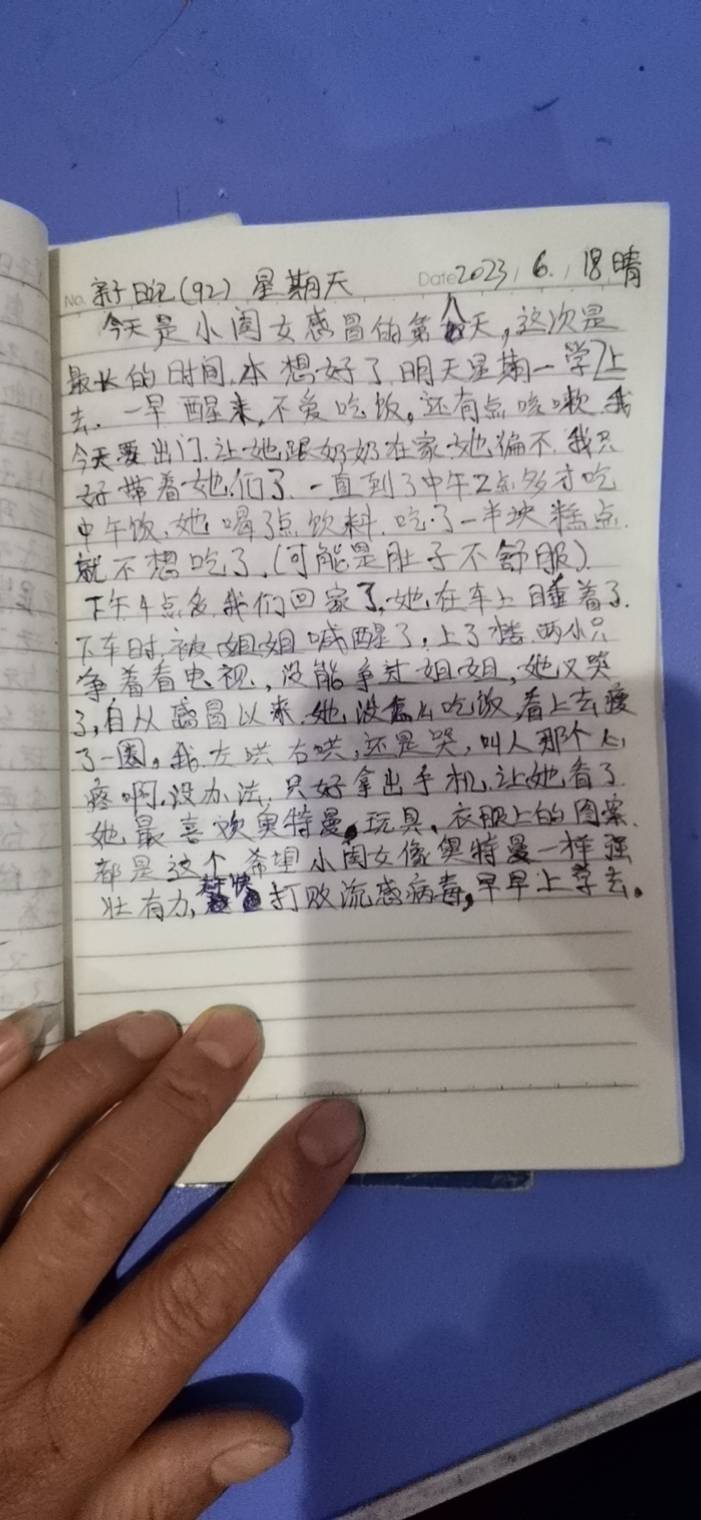 No. 新日记(92) 星期天 Date 2023, 6, 18 晴
今天是小闺女感冒的第八天,这次是
最长的时间.本想好了明天星期一学上
去.一早醒来,不爱吃饭。还有点咳嗽.我
今天要出门.让她跟奶奶在家她偏不.我只
好带着她们了.一直到了中午2点多才吃
中午饭,她喝了点饮料.吃了一半块糕点.
就不想吃了.(可能是肚子不舒服).
下午4点多我们回家了,她在车上睡着了.
下车时被姐姐喊醒了,上了楼两小只
争着看电视,没能争过姐姐,她又哭
了,自从感冒以来.她没怎么吃饭,看上去瘦
了一圈。我左哄右哄,还是哭,叫人那个心
疼啊.没办法,只好拿出手机,让她看了.
她最喜欢奥特曼,玩具.衣服上的图案.
都是这个.希望小闺女像奥特曼一样强
壮有力,打败流感病毒,早早上学去。